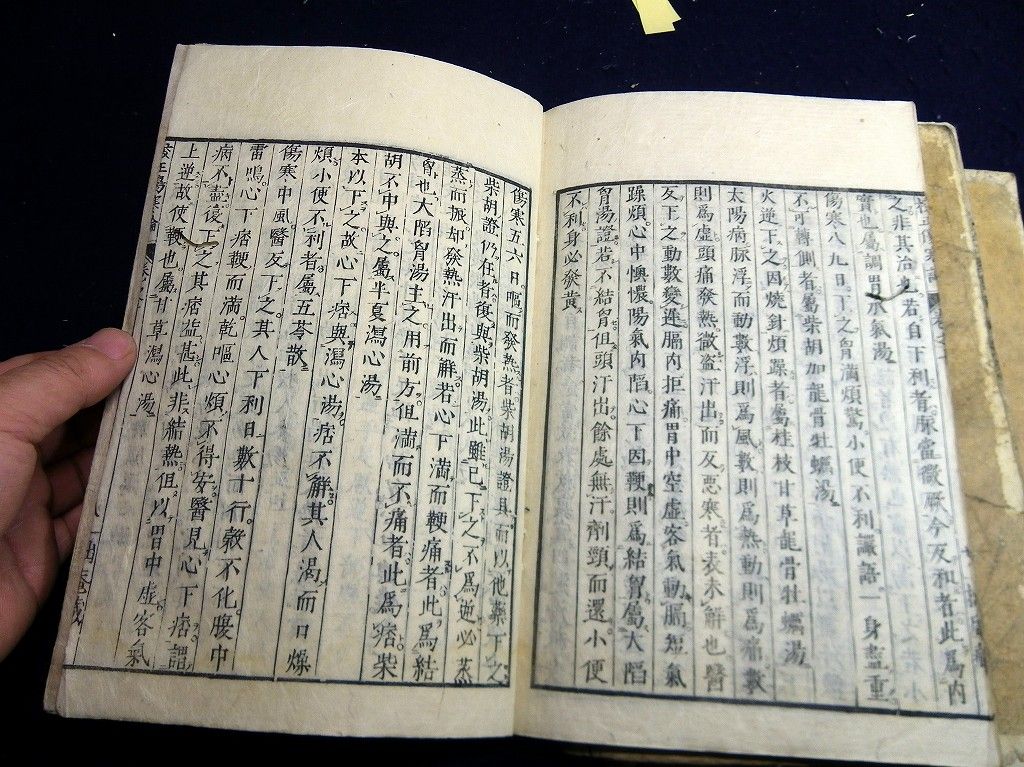 之非其治也若自下利者脉當微厥今反和者此爲内
實也屬調胃承氣湯
傷寒八九日下之胷滿煩驚小便不利讝語一身盡重
不可轉側者屬柴胡加龍骨牡蠣湯
火逆下之因燒針煩躁者屬桂枝甘草龍骨牡蠣湯
太陽病脉浮而動數浮則爲風數則爲熱動則爲痛數
則爲虚頭痛發熱微盗汗出而反悪寒者表未解也醫
反下之動數變遲膈内拒痛胃中空虚客氣動膈短氣
躁煩心中懊憹陽氣内陷心下因鞕則爲結胷屬大陷
胷湯證若不結胷但頭汗出餘處無汗劑頸而還小便
不利身必發黄
傷寒五六日嘔而發熱者柴胡湯證具而以他藥下之
柴胡證仍在者復與柴胡湯此雖已下之不爲逆必蒸
蒸而振却發熱汗出而解若心下滿而鞕痛者此爲結
胷也大陷胷湯主之用前方但滿而不痛者此爲痞柴
胡不中與之屬半夏瀉心湯
本以下之故心下痞與瀉心湯痞不解其人渴而口燥
煩小便不利者屬五苓散
傷寒中風醫反下之其人下利日數十行穀不化腹中
雷鳴心下痞鞕而滿乾嘔心煩不得安醫見心下痞謂
病不盡復下之其痞益甚此非結熱但以胃中虚客氣
上逆故使鞕也屬甘草瀉心湯